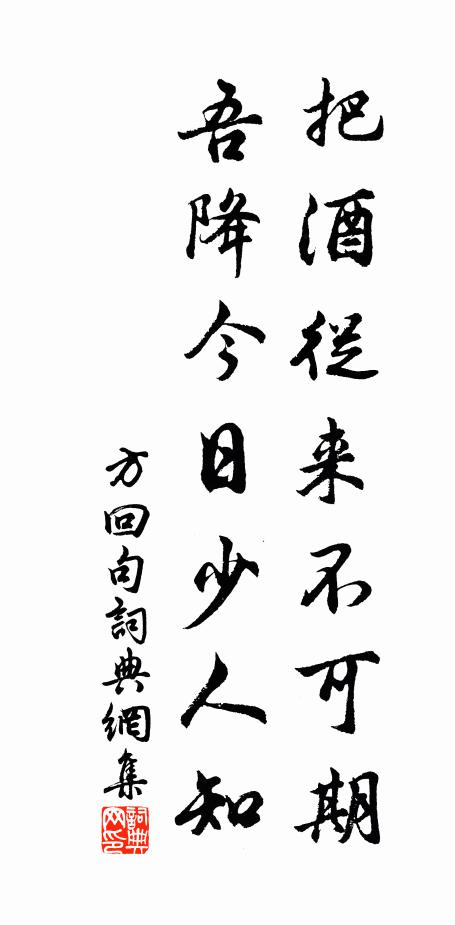 把酒從来不可期
吾降今日少人知
方回句詞典網集
詞典網印